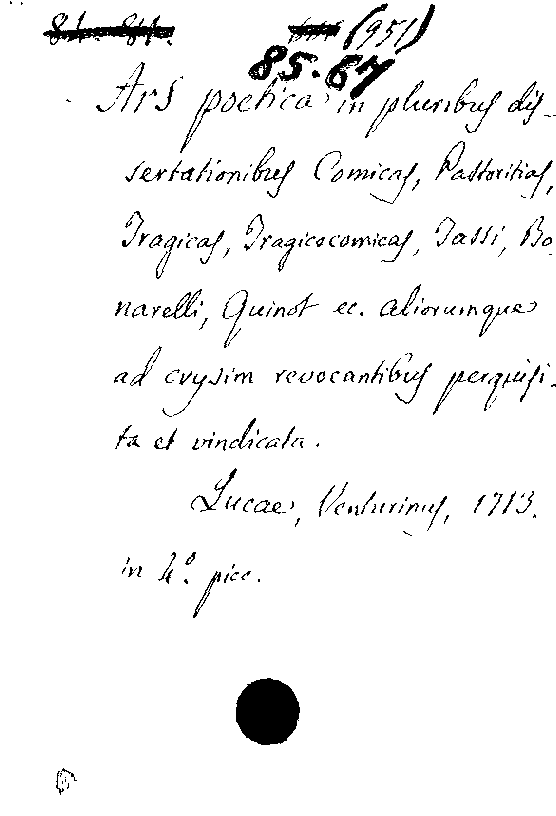 (951)
85.67
Ars poetica in pluribus dis-
sertationibus Comicas, Pastoritias,
Tragicas, Tragicocomicas, Tassi, Bo
narelli, Quinot ec. aliorumque
ad crysim revocantibus perquisi-
ta et vindicata.
Lucae, Venturinus, 1713.
in 4°. picc.